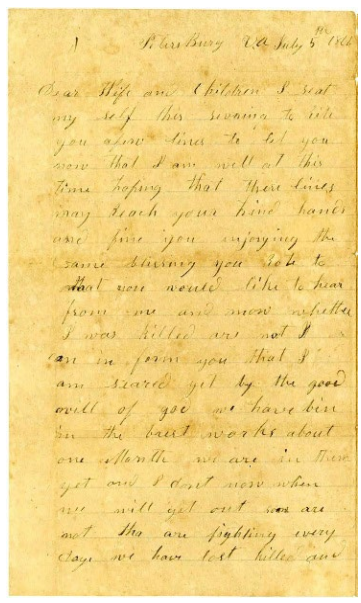 Petersburg Va July 5th 186
Dear Wife and Children I seat
my self this evening to rite
you a few lines to let you
now that I am well at this
time hoping that these lines
may reach your kind hands
and fine you enjoying the
same blessing you rote to
that you would like to hear
from me and now whether
I was killed are not I
can in form you that I
am spared yet by the good
will of god we have bin
in the brest works about
one Month we are in there
yet and I dont now when
we will get out are
not tha are fighting every
day we have lost killed and